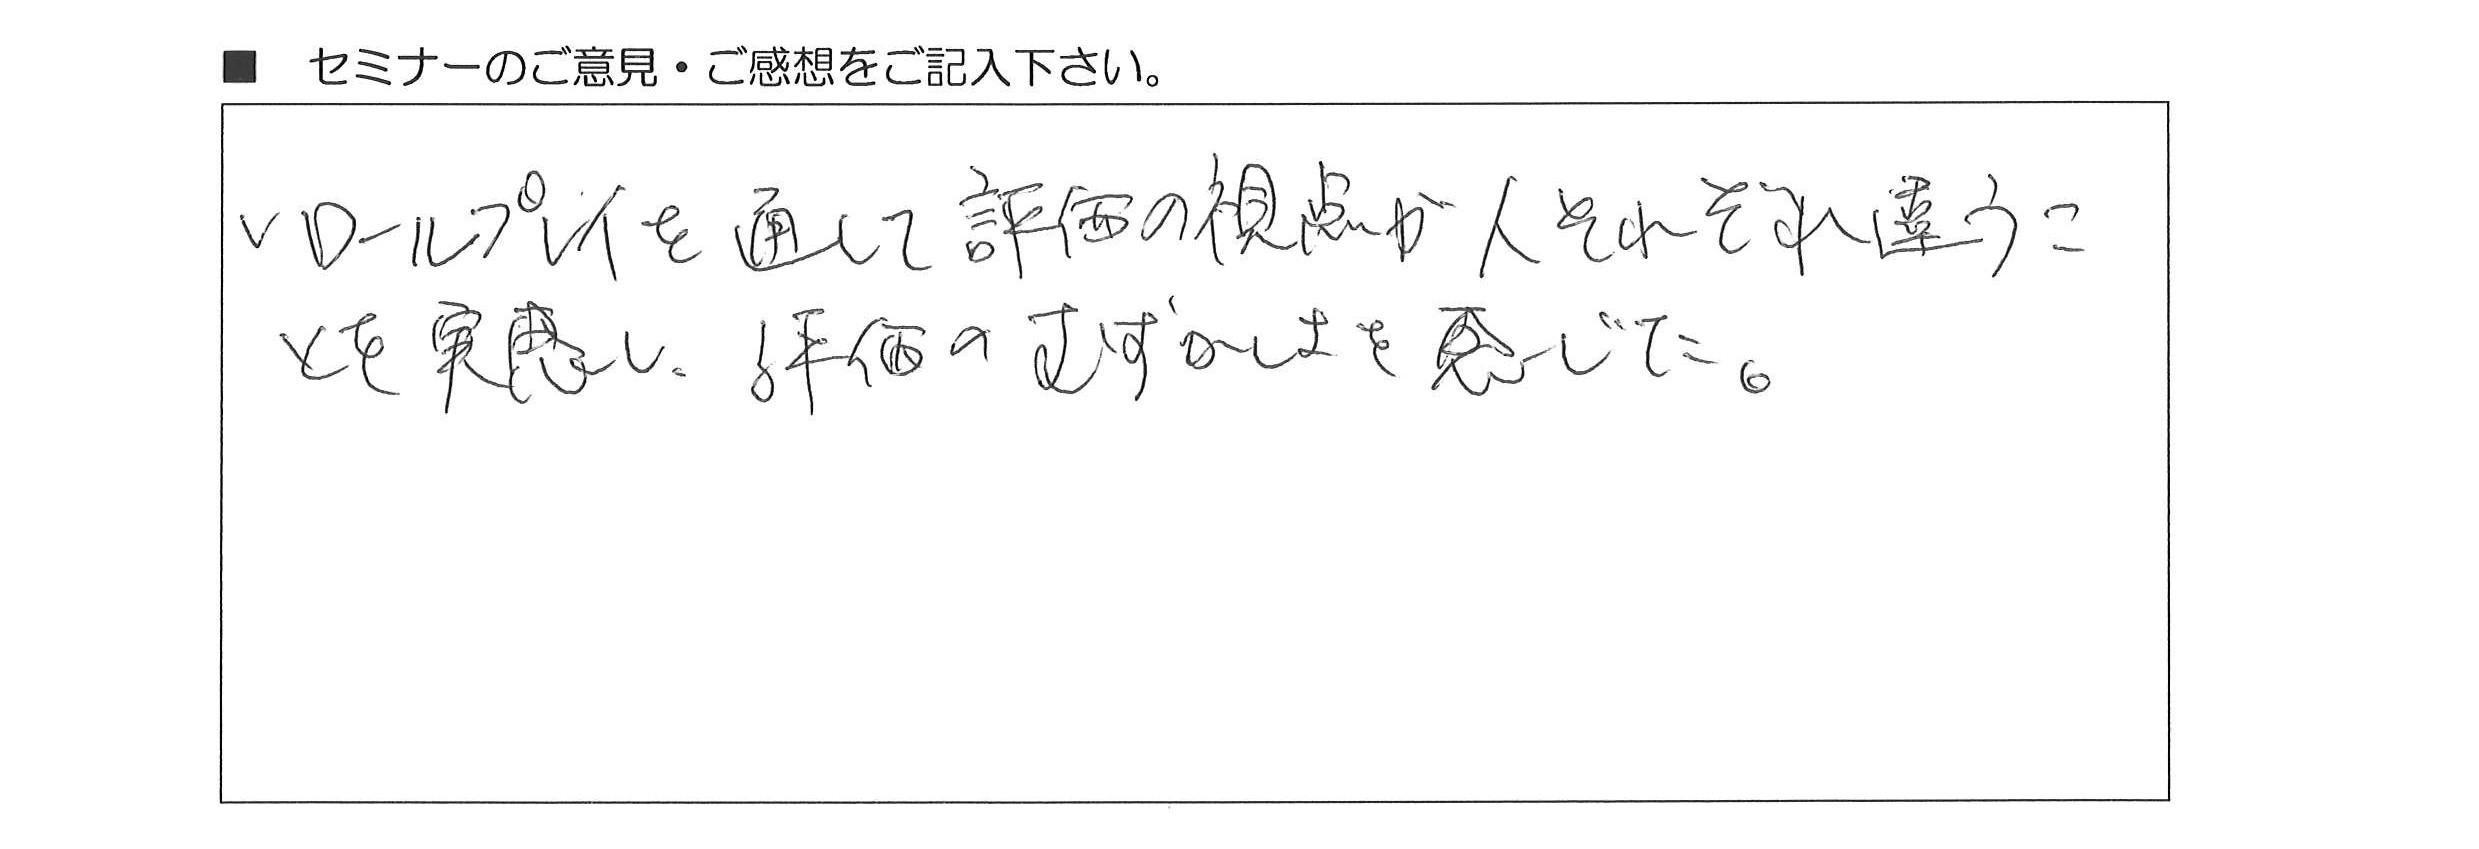 ■ セミナーのご意見・ご感想をご記入下さい。
・ロールプレイを通して評価の視点が人それぞれ違うこ
とを実感し、評価のむずかしさを感じた。